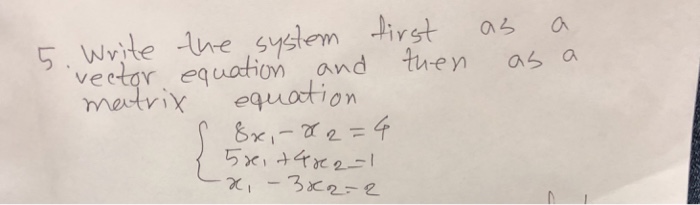 5. Write the system first as a
vector equation and then as a
matrix equation
8x₁ - x₂ = 4
5x₁ + 4x₂ = 1
x₁ - 3x₂ = 2